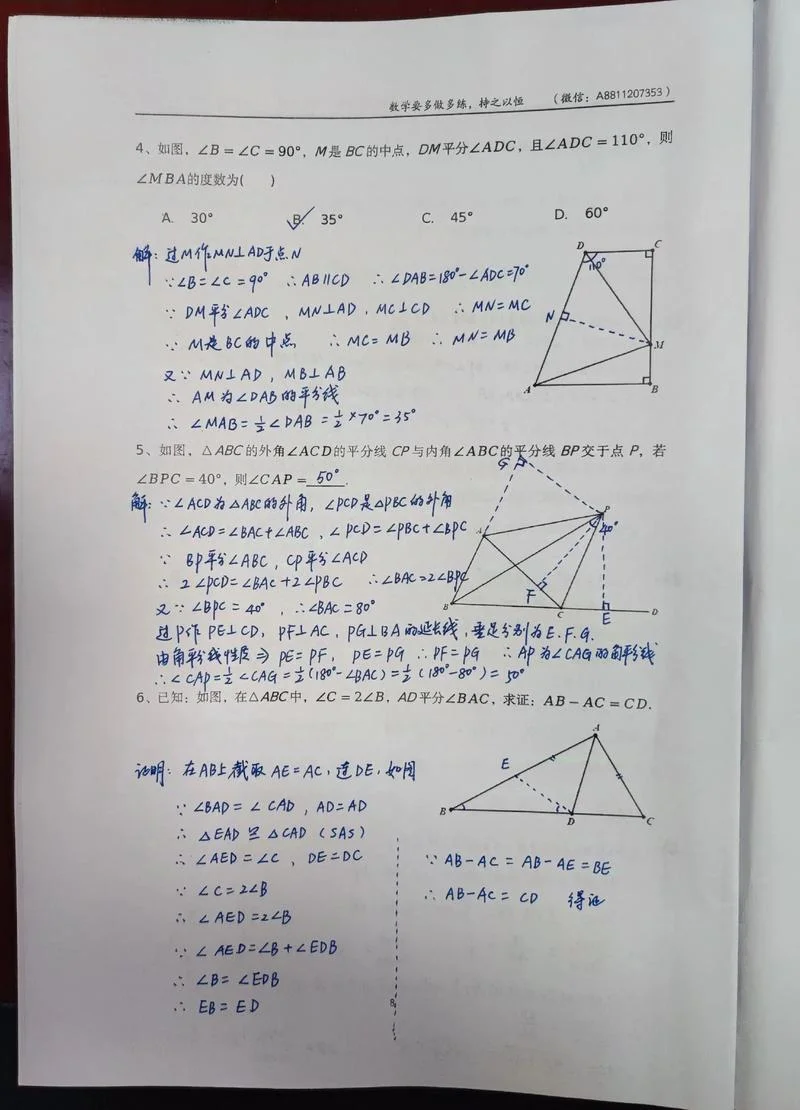 数学要多做多练，持之以恒 （微信：A8811207353）
4、如图，∠B＝∠C＝90°，M是BC的中点，DM平分∠ADC，且∠ADC＝110°，则
∠MBA的度数为(  )
A. 30° B. 35° C. 45° D. 60°
解：过M作MN⊥AD于点N
∵∠B=∠C=90° ∴AB∥CD ∴∠DAB=180°-∠ADC=70°
∵ DM平分∠ADC，MN⊥AD，MC⊥CD ∴MN=MC
∵ M是BC的中点 ∴MC=MB ∴MN=MB
又∵ MN⊥AD，MB⊥AB
∴ AM为∠DAB的平分线
∴ ∠MAB=½∠DAB=½×70°=35°
D C
110°
N
M
A B
5、如图，△ABC的外角∠ACD的平分线CP与内角∠ABC的平分线BP交于点P，若
∠BPC＝40°，则∠CAP＝ 50° .
解：∵∠ACD为△ABC的外角，∠PCD是△PBC的外角
∴ ∠ACD=∠BAC+∠ABC，∠PCD=∠PBC+∠BPC
∵ BP平分∠ABC，CP平分∠ACD
∴ 2∠PCD=∠BAC+2∠PBC ∴∠BAC=2∠BPC
又∵∠BPC=40°，∴∠BAC=80°
过P作PE⊥CD，PF⊥AC，PG⊥BA的延长线，垂足分别为E.F.G.
由角平分线性质⇒PE=PF，PE=PG ∴PF=PG ∴AP为∠CAG的角平分线
∴∠CAP=½∠CAG=½(180°-∠BAC)=½(180°-80°)=50°
G
P
40°
A
F
B C E D
6、已知：如图，在△ABC中，∠C＝2∠B，AD平分∠BAC，求证：AB－AC＝CD.
证明：在AB上截取AE=AC，连DE，如图
∵ ∠BAD=∠CAD，AD=AD
∴ △EAD≌△CAD（SAS）
∴ ∠AED=∠C，DE=DC
∵ ∠C=2∠B
∴ ∠AED=2∠B
∵ ∠AED=∠B+∠EDB
∴ ∠B=∠EDB
∴ EB=ED
A
E
B D C
∵ AB-AC=AB-AE=BE
∴ AB-AC=CD 得证
8